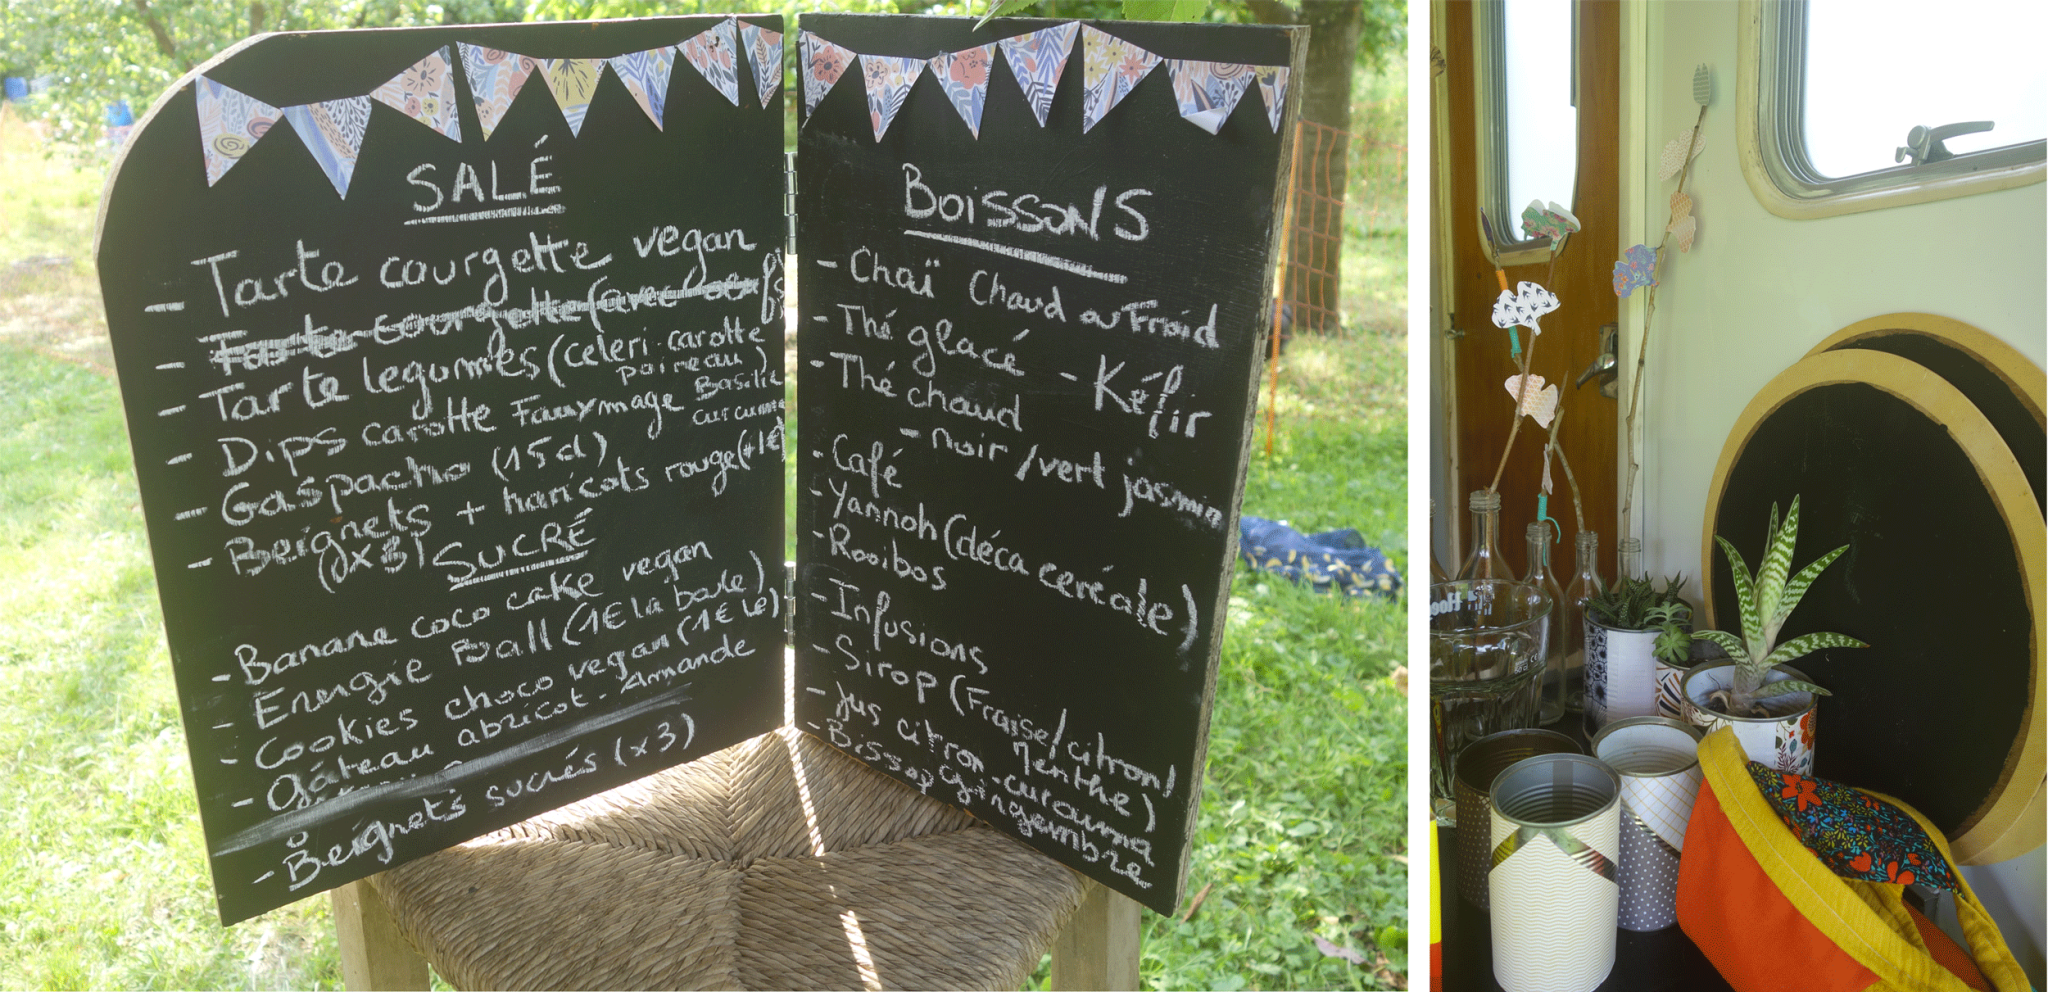 SALÉ
- Tarte courgette vegan
- Tarte courgette (avec oeufs
- Tarte legumes (celeri-carotte
poireau)
- Dips carotte Fauxmage Basilic
curcuma
- Gaspacho (15cl)
- Beignets + haricots rouge (+1€)
(x3)
SUCRÉ
- Banane coco cake vegan
- Energie Ball (1€ la boule)
- Cookies choco vegan (1€ le)
- Gâteau abricot-Amande
- Beignets sucrés (x3)
BoissonS
- Chaï Chaud ou Froid
- Thé glacé - Kéfir
- Thé chaud
- noir / vert jasmin
- Café
- Yannoh (déca cereale)
- Rooibos
- Infusions
- Sirop (Fraise/citron/
Menthe)
- Jus citron-curcuma
gingembre
- Bissap